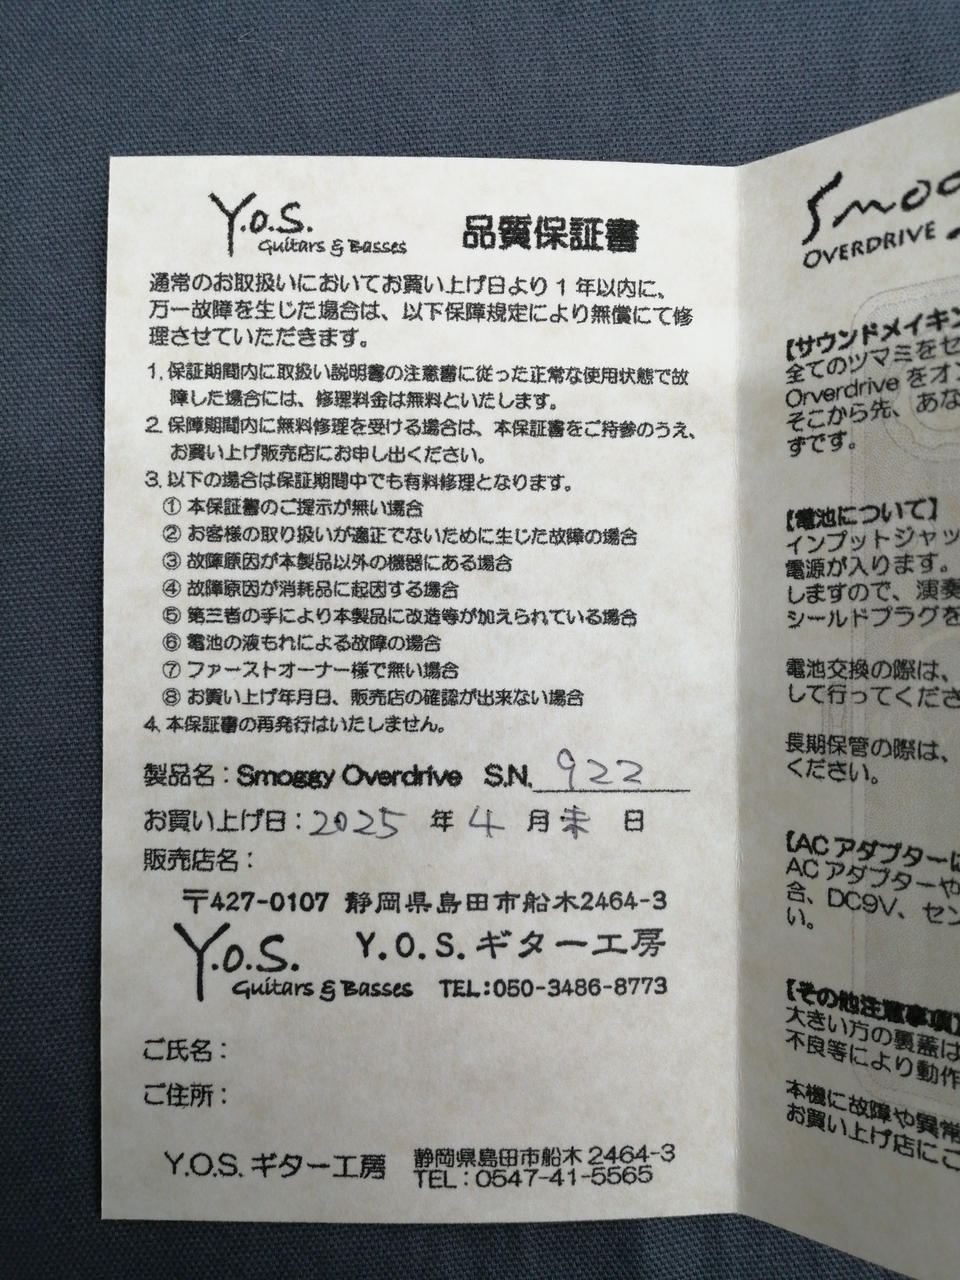 Y.O.S.
Guitars & Basses
品質保証書
通常のお取扱いにおいてお買い上げ日より1年以内に、
万一故障を生じた場合は、以下保障規定により無償にて修
理させていただきます。
1. 保証期間内に取扱い説明書の注意書に従った正常な使用状態で故
障した場合には、修理料金は無料といたします。
2. 保障期間内に無料修理を受ける場合は、本保証書をご持参のうえ、
お買い上げ販売店にお申し出ください。
3. 以下の場合は保証期間中でも有料修理となります。
① 本保証書のご提示が無い場合
② お客様の取り扱いが適正でないために生じた故障の場合
③ 故障原因が本製品以外の機器にある場合
④ 故障原因が消耗品に起因する場合
⑤ 第三者の手により本製品に改造等が加えられている場合
⑥ 電池の液もれによる故障の場合
⑦ ファーストオーナー様で無い場合
⑧ お買い上げ年月日、販売店の確認が出来ない場合
4. 本保証書の再発行はいたしません。
製品名：Smoggy Overdrive S.N. 922
お買い上げ日：2025 年 4 月 末 日
販売店名：
〒427-0107 静岡県島田市船木2464-3
Y.O.S.
Guitars & Basses
Y.O.S.ギター工房
TEL:050-3486-8773
ご氏名：
ご住所：
Y.O.S.ギター工房
静岡県島田市船木 2464-3
TEL：0547-41-5565
OVERDRIVE
【サウンドメイキン
全てのツマミをセ
Orverdrive をオ
そこから先、あな
ずです。
【電池について】
インプットジャッ
電源が入ります。
しますので、演奏
シールドプラグを
電池交換の際は、
して行ってくださ
長期保管の際は、
ください。
【AC アダプターに
AC アダプターや
合、DC9V、セン
い。
【その他注意事項】
大きい方の裏蓋は
不良等により動作
本機に故障や異常
お買い上げ店にご